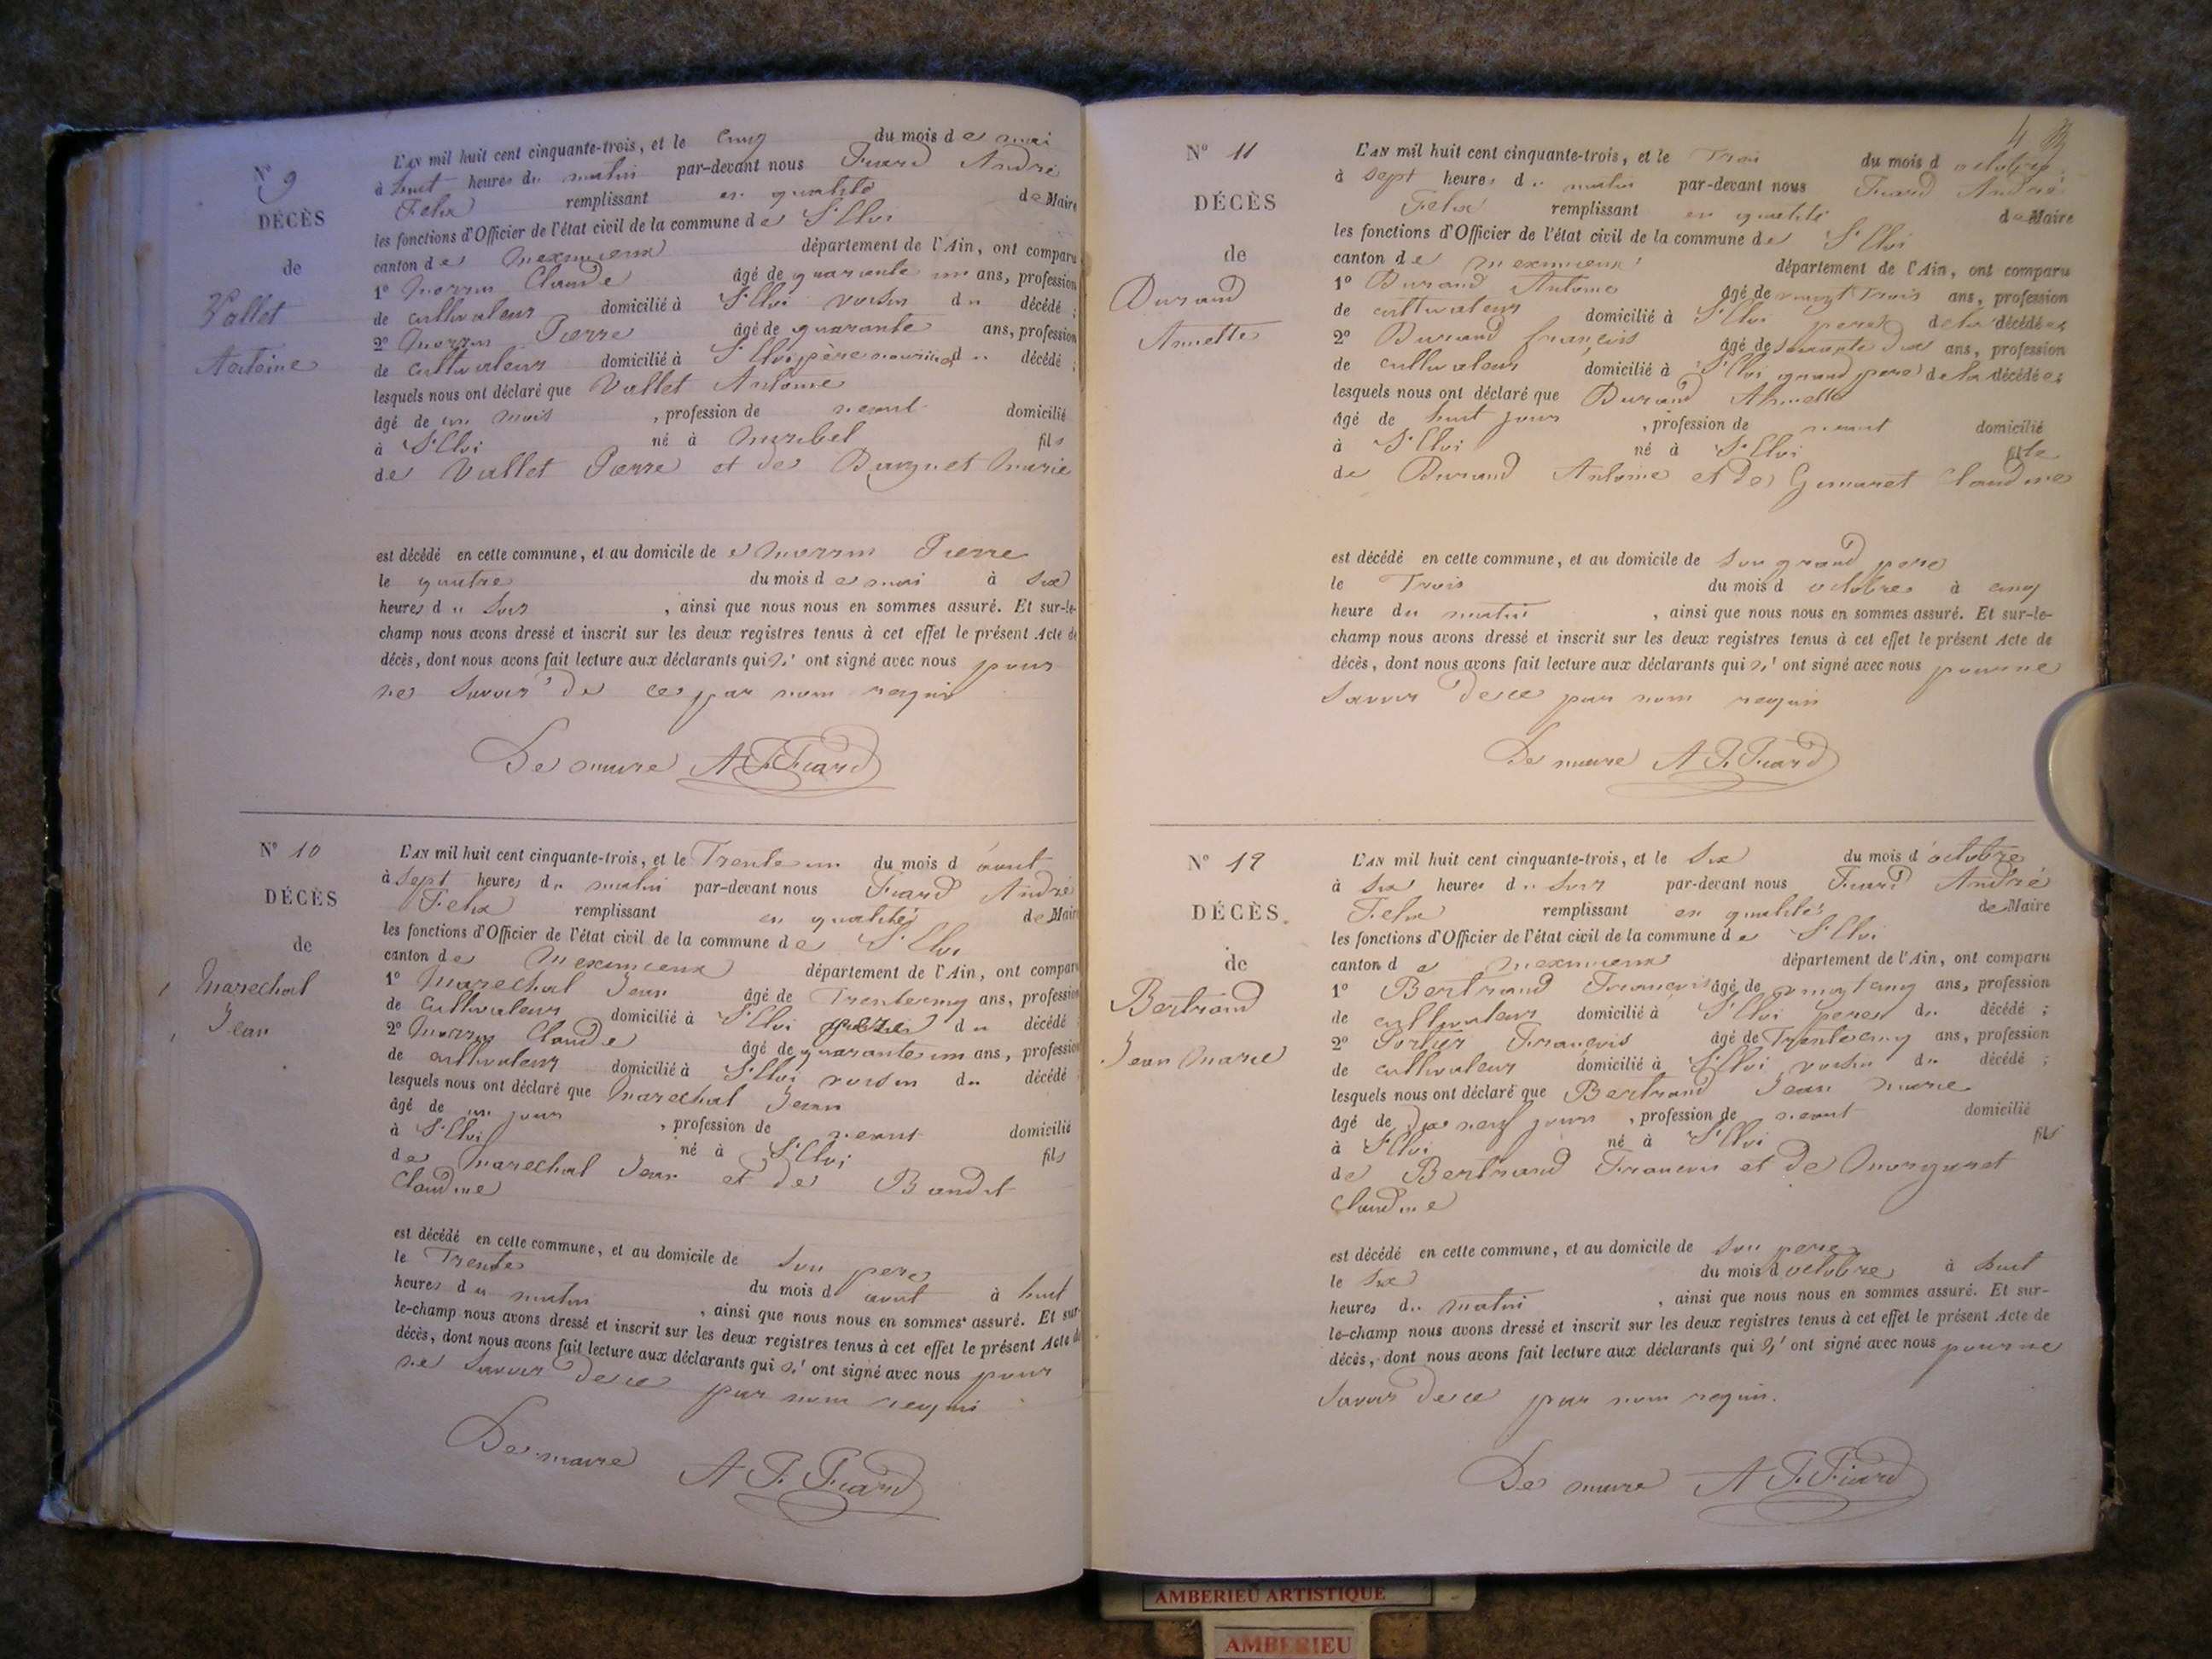 N° 9
DÉCÈS
de
Vallet
Antoine
L'AN mil huit cent cinquante-trois, et le cinq du mois de mai
à huit heures du matin par-devant nous Fiard André
Felix remplissant en qualité de Maire
les fonctions d'Officier de l'état civil de la commune de St Eloi
canton de Meximieux département de l'Ain, ont comparu
1° Morrin Claude âgé de quarante un ans, profession
de cultivateur domicilié à St Eloi voisin du décédé ;
2° Morrin Pierre âgé de quarante ans, profession
de cultivateur domicilié à St Eloi père nouricier du décédé ;
lesquels nous ont déclaré que Vallet Antoine
âgé de un mois , profession de neant domicilié
à St Eloi né à Miribel fils
de Vallet Pierre et de Marie
est décédé en cette commune, et au domicile de Morrin Pierre
le quatre du mois de mai à six
heures du soir , ainsi que nous nous en sommes assuré. Et sur-le-
champ nous avons dressé et inscrit sur les deux registres tenus à cet effet le présent Acte de
décès, dont nous avons fait lecture aux déclarants qui n' ont signé avec nous pour
ne savoir de ce par nom requis
Le maire A F Fiard
N° 10
DÉCÈS
de
Marechal
Jean
L'AN mil huit cent cinquante-trois, et le Trente un du mois d aout
à sept heures du matin par-devant nous Fiard André
Felix remplissant en qualité de Maire
les fonctions d'Officier de l'état civil de la commune de St Eloi
canton de Meximieux département de l'Ain, ont comparu
1° Marechal Jean âgé de Trente cinq ans, profession
de cultivateur domicilié à St Eloi père du décédé
2° Morrin Claude âgé de quarante un ans, profession
de cultivateur domicilié à St Eloi voisin du décédé
lesquels nous ont déclaré que Marechal Jean
âgé de un jour , profession de neant domicilié
à St Eloi né à St Eloi fils
de Marechal Jean et de
Claudine
est décédé en cette commune, et au domicile de son pere
le Trente du mois d aout à huit
heures du matin , ainsi que nous nous en sommes assuré. Et sur-
le-champ nous avons dressé et inscrit sur les deux registres tenus à cet effet le présent Acte de
décès, dont nous avons fait lecture aux déclarants qui n' ont signé avec nous pour
ne savoir de ce par nom requi
Le maire A F Fiard
N° 11
DÉCÈS
de
Durand
Annette
L'AN mil huit cent cinquante-trois, et le Trois du mois d octobre
à sept heures du matin par-devant nous Fiard André
Felix remplissant en qualité de Maire
les fonctions d'Officier de l'état civil de la commune de St Eloi
canton de Meximieux département de l'Ain, ont comparu
1° Durand Antoine âgé de vingt trois ans, profession
de cultivateur domicilié à St Eloi pere de la décédée
2° Durand françois âgé de soixante dix ans, profession
de cultivateur domicilié à St Eloi grand pere de la décédée
lesquels nous ont déclaré que Durand Annette
âgé de huit jours , profession de neant domicilié
à St Eloi né à St Eloi fille
de Durand Antoine et de Gimaret Claudine
est décédé en cette commune, et au domicile de son grand pere
le Trois du mois d octobre à cinq
heure du matin , ainsi que nous nous en sommes assuré. Et sur-le-
champ nous avons dressé et inscrit sur les deux registres tenus à cet effet le présent Acte de
décès, dont nous avons fait lecture aux déclarants qui n' ont signé avec nous pour ne
savoir de ce par nom requis
Le maire A F Fiard
N° 12
DÉCÈS.
de
Bertrand
Jean Marie
L'AN mil huit cent cinquante-trois, et le six du mois d'octobre
à six heures du soir par-devant nous Fiard André
Felix remplissant en qualité de Maire
les fonctions d'Officier de l'état civil de la commune de St Eloi
canton de Meximieux département de l'Ain, ont comparu
1° Bertrand Francois âgé de vingt cinq ans, profession
de cultivateur domicilié à St Eloi pere du décédé ;
2° Portier François âgé de Trente cinq ans, profession
de cultivateur domicilié à St Eloi voisin du décédé ;
lesquels nous ont déclaré que Bertrand Jean Marie
âgé de dix neuf jours , profession de neant domicilié
à St Eloi né à St Eloi fils
de Bertrand Francois et de Morgaret
Claudine
est décédé en cette commune, et au domicile de son pere
le six du mois d octobre à huit
heures du matin , ainsi que nous nous en sommes assuré. Et sur-
le-champ nous avons dressé et inscrit sur les deux registres tenus à cet effet le présent Acte de
décès, dont nous avons fait lecture aux déclarants qui n' ont signé avec nous pour ne
savoir de ce par nom requis.
Le maire A F Fiard
AMBERIEU ARTISTIQUE
AMBERIEU